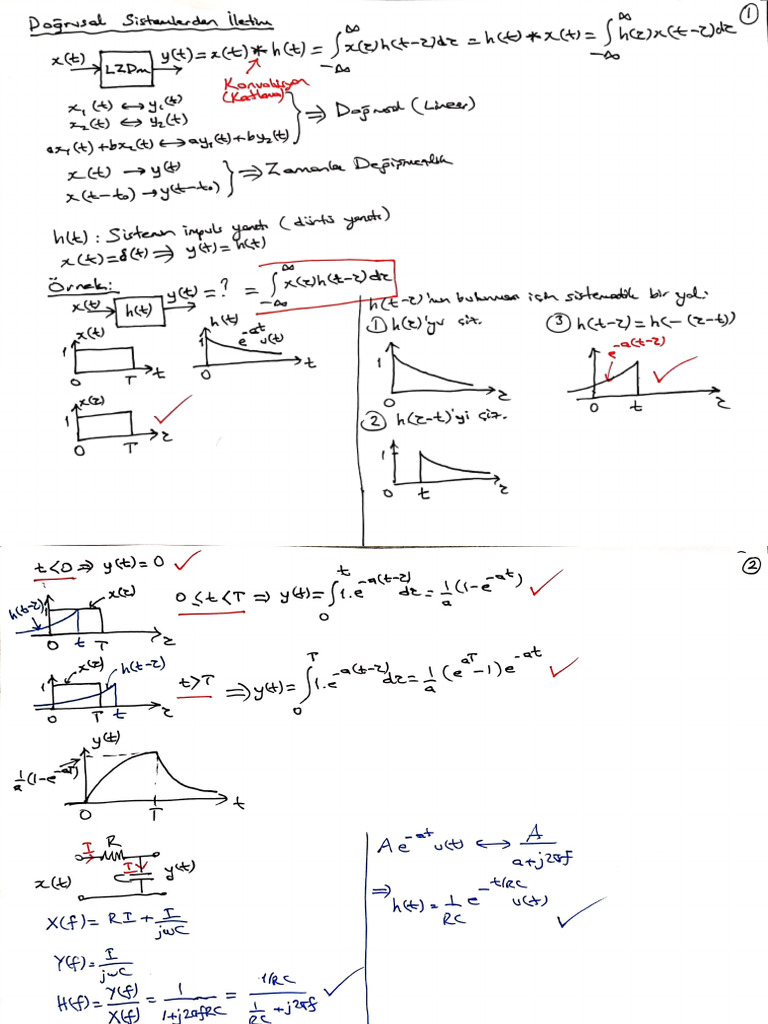 Doğrusal Sistemlerden İletim
1
x(t) LZDm y(t) = x(t) * h(t) = ∫_{-∞}^{∞} x(τ)h(t-τ)dτ = h(t) * x(t) = ∫_{-∞}^{∞} h(τ)x(t-τ)dτ
Konvolüsyon
(Katlama)
x₁(t) ↔ y₁(t)
x₂(t) ↔ y₂(t)
ax₁(t)+bx₂(t) ↔ ay₁(t)+by₂(t)
⇒ Doğrusal (Linear)
x(t) → y(t)
x(t-t₀) → y(t-t₀)
⇒ Zamanla Değişmezlik
h(t): Sistemin impuls yanıtı (dürtü yanıtı)
x(t)=δ(t) ⇒ y(t)=h(t)
Örnek:
x(t) h(t) y(t) = ? = ∫_{-∞}^{∞} x(τ)h(t-τ)dτ
x(t)
1
0 T t
h(t)
1 e^{-at}u(t)
0 t
x(τ)
1
0 T τ
h(t-τ)'nun bulunması için sistematik bir yol:
① h(τ)'yu çiz.
1
0 τ
② h(τ-t)'yi çiz.
1
0 t τ
③ h(t-τ) = h(-(τ-t))
e^{-a(t-τ)}
0 t τ
2
t<0 ⇒ y(t)=0
h(t-τ) 1 x(τ)
0 t T τ
0≤t<T ⇒ y(t) = ∫_{0}^{t} 1.e^{-a(t-τ)}dτ = 1/a (1-e^{-at})
x(τ) h(t-τ)
1
0 T t τ
t>T ⇒ y(t) = ∫_{0}^{T} 1.e^{-a(t-τ)}dτ = 1/a (e^{aT}-1)e^{-at}
y(t)
1/a (1-e^{-aT})
0 T t
I R
I C
x(t) y(t)
X(f) = RI + I/jωC
Y(f) = I/jωC
H(f) = Y(f)/X(f) = 1/(1+j2πfRC) = (1/RC)/(1/RC + j2πf)
Ae^{-at}u(t) ↔ A/(a+j2πf)
⇒ h(t) = 1/RC e^{-t/RC} u(t)